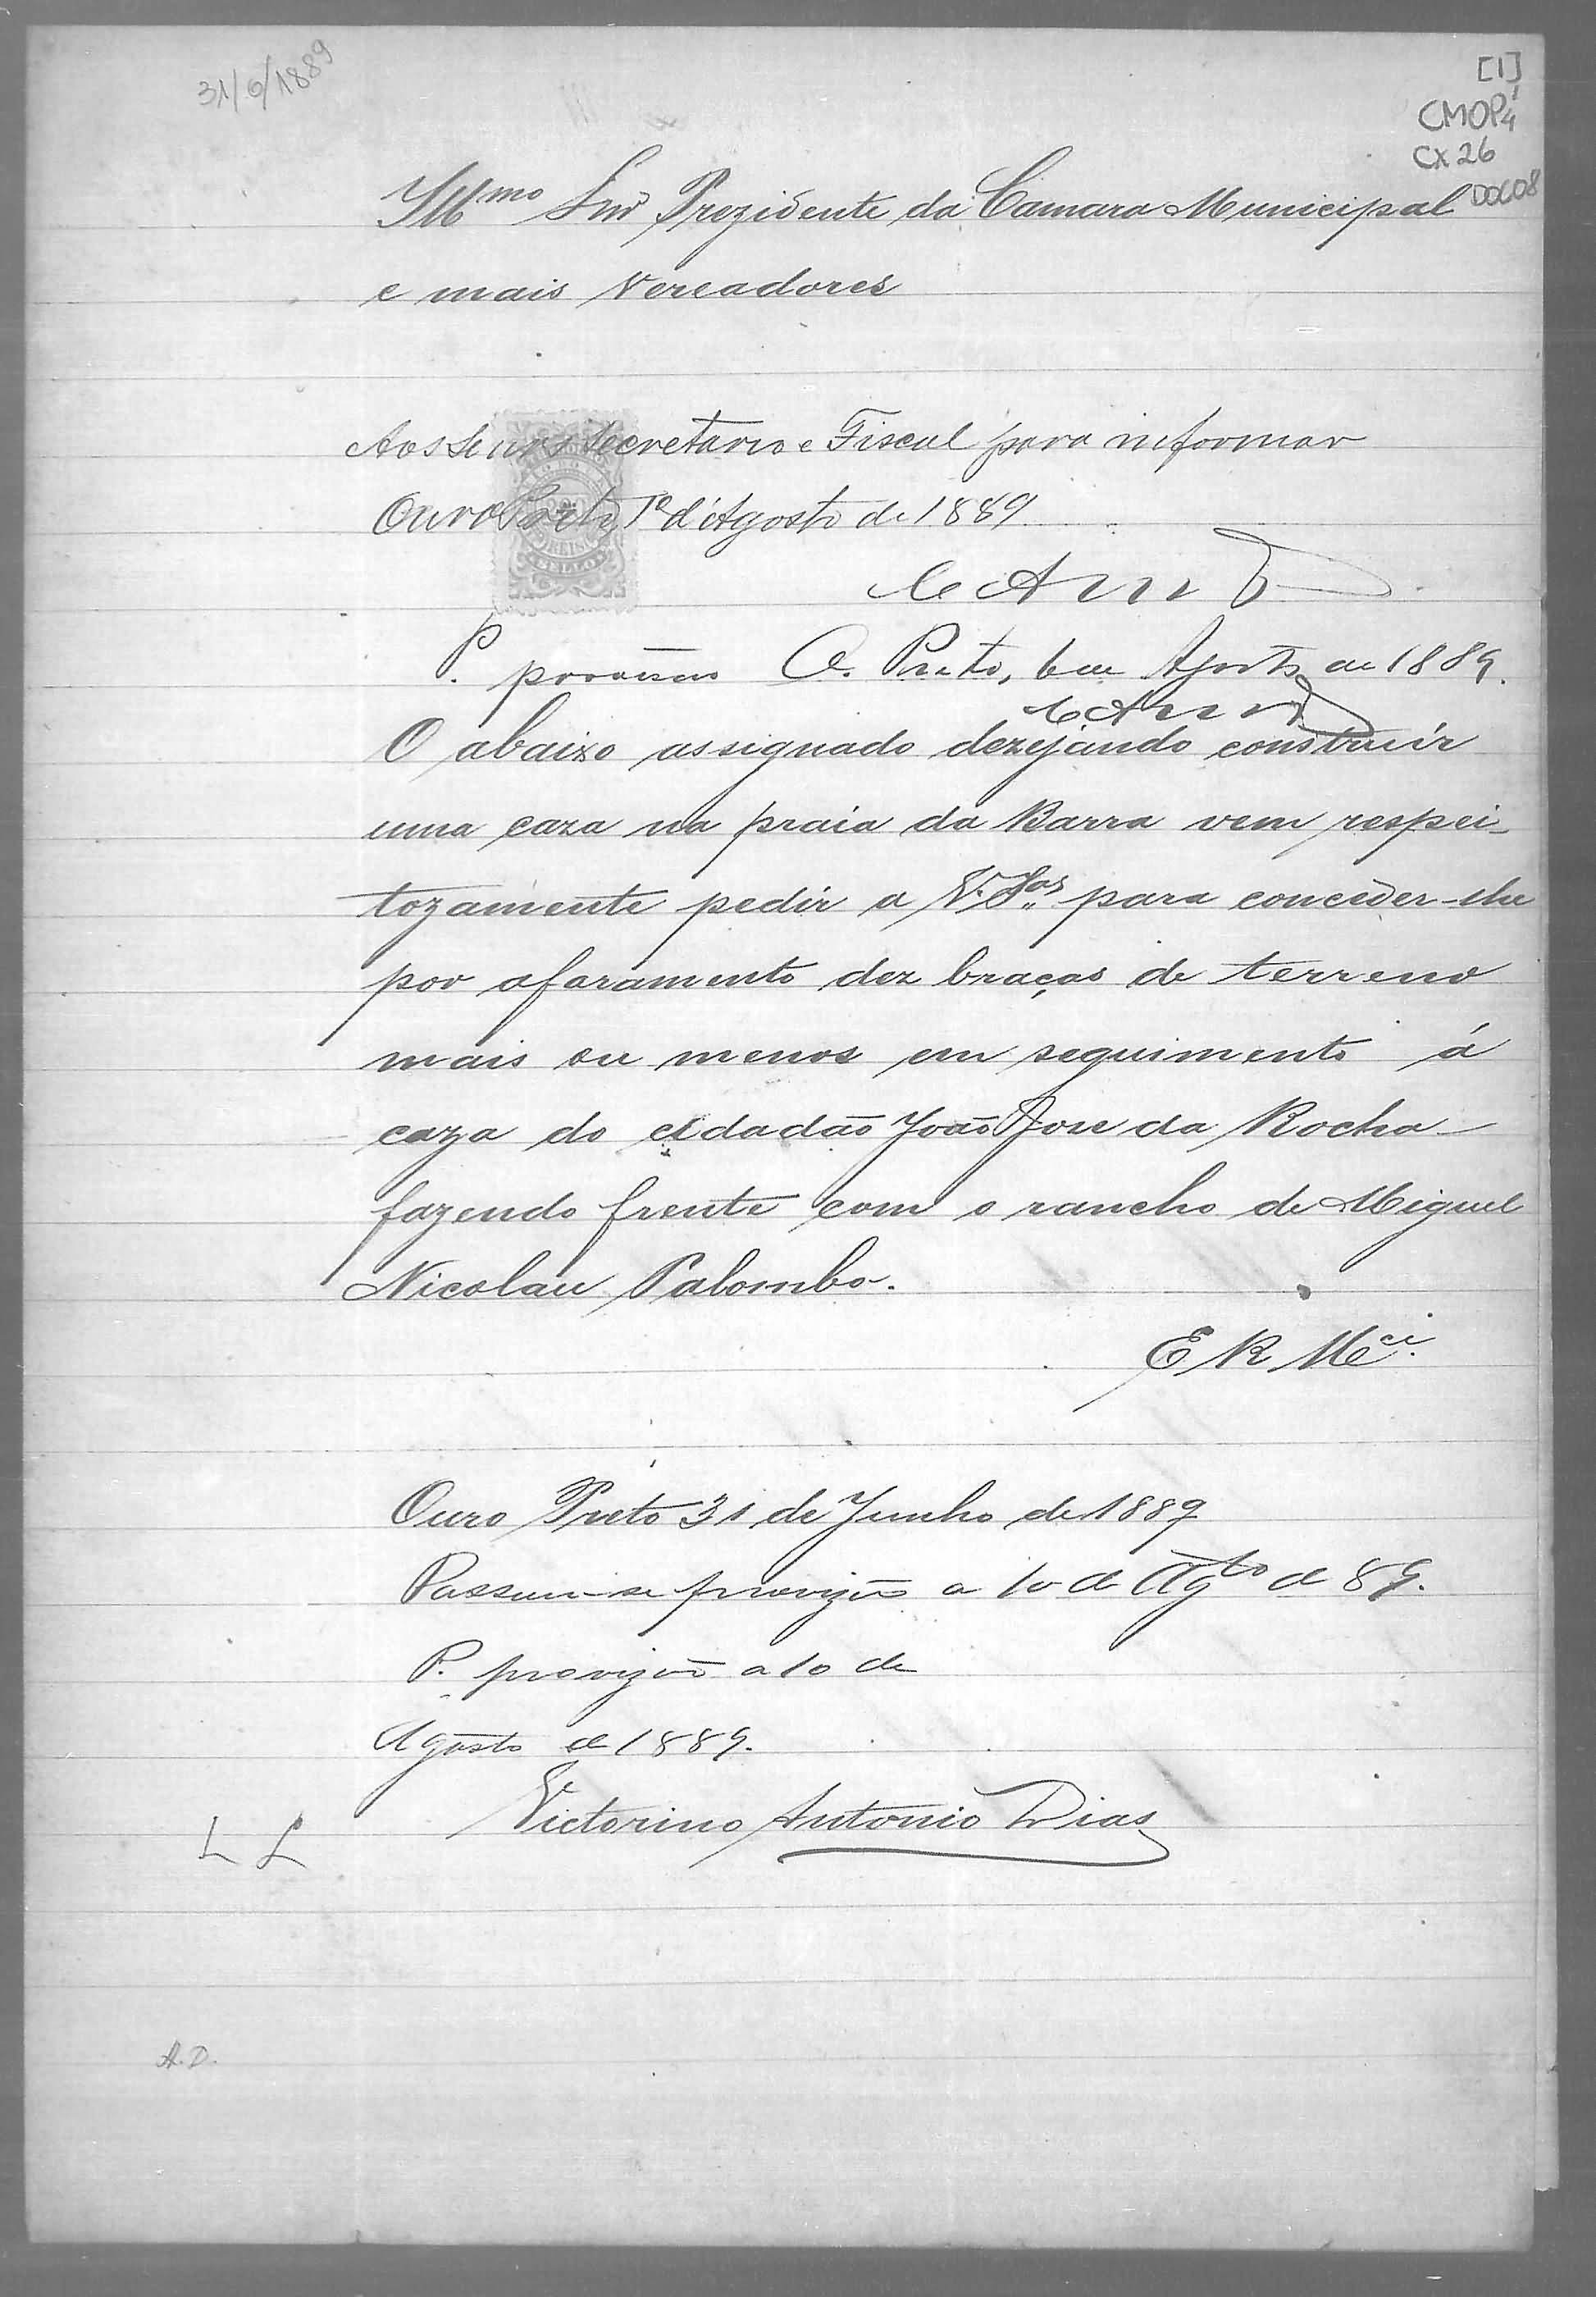 31/6/1889
[1]
CMOP 1/4
CX 26
DOC08
Illmo Snr Prezidente da Camara Municipal
e mais Vereadores
Aos Senrs Secretario e Fiscal para informar
Ouro Preto, 1º d'Agosto de 1889
REIS
SELLO
P. O. Preto, 6 de Agosto de 1889.
O abaixo assignado dezejando construir
uma caza na praia da Barra vem respei-
tozamente pedir a V. Sas para conceder-lhe
por aforamento dez braças de terreno
mais ou menos em seguimento á
caza do cidadão João Jose da Rocha
fazendo frente com o rancho de Miguel
Nicolau Palombo.
E R Mce.
Ouro Preto 31 de Junho de 1889
Passou-se provizão a 10 de Agto de 89.
P. provizão a 10 de
Agosto de 1889.
Victorino Antonio Dias
L L
A.D.